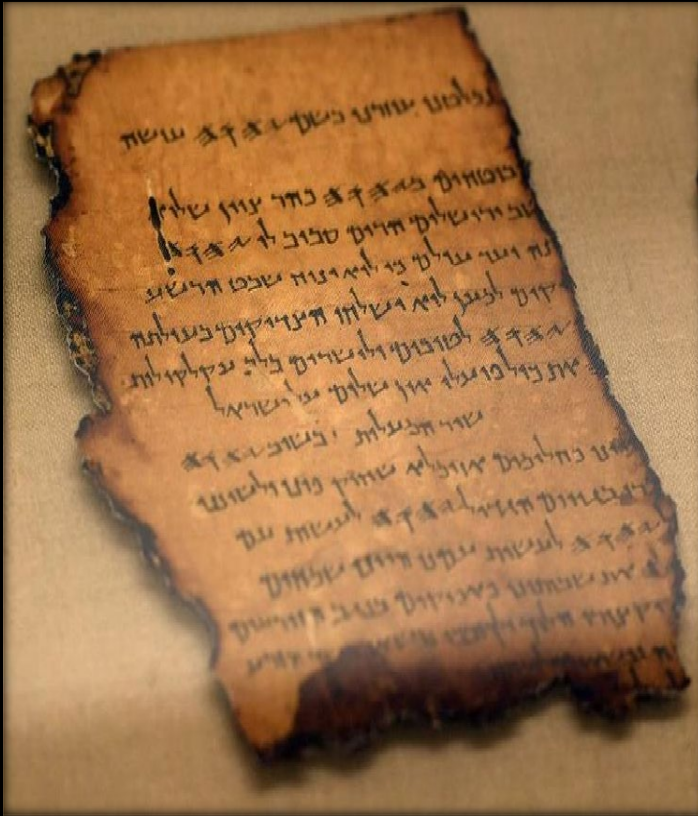 נמלטנו עוזרנו בשם 𐤉𐤄𐤅𐤄 עושה
בוטחים ב𐤉𐤄𐤅𐤄 כהר ציון שלוא
ירושלים הרים סביב לו 𐤉𐤄𐤅𐤄
ועד עולם כי לוא ינוח שבט הרשע
למען לוא ישלחו הצדיקים בעולתה
𐤉𐤄𐤅𐤄 לטובים ולישרים בלב עקלקולות
את כול פועלי און שלום על ישראל
שיר המעלות בשוב 𐤉𐤄𐤅𐤄
כחלומים אז ימלא שחוק פינו ולשוננו
הגדיל 𐤉𐤄𐤅𐤄 לעשות עם
𐤉𐤄𐤅𐤄 לעשות עמנו היינו שמחים
את שבותנו כאפיקים בנגב הזורעים